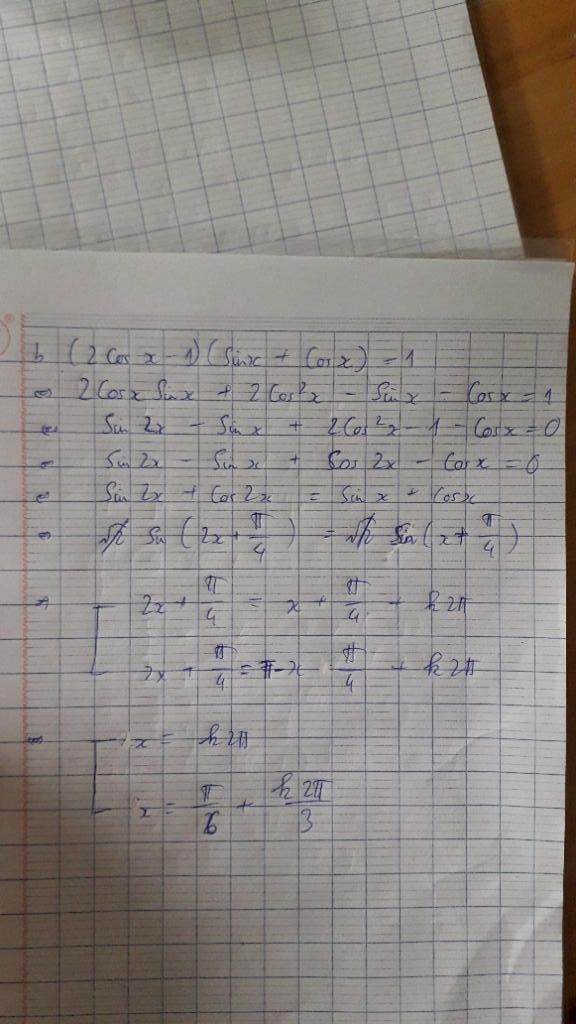 b (2 Cos x - 1) (Sin x + Cos x) = 1
⇔ 2 Cosx Sin x + 2 Cos²x - Sin x - Cos x = 1
⇔ Sin 2x - Sin x + 2 Cos²x - 1 - Cos x = 0
⇔ Sin 2x - Sin x + Cos 2x - Cos x = 0
⇔ Sin 2x + Cos 2x = Sin x + Cos x
⇔ √2 Sin (2x + π/4) = √2 Sin (x + π/4)
⇔ [ 2x + π/4 = x + π/4 + k2π
2x + π/4 = π - x π/4 + k2π
⇔ [ x = k2π
x = π/6 + k2π/3